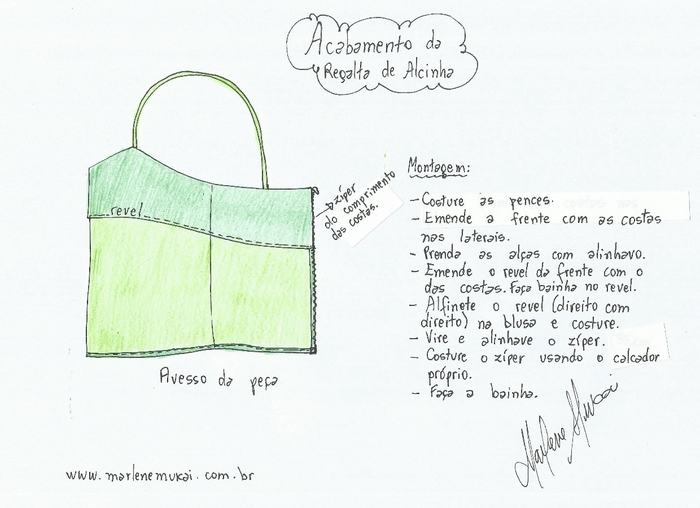 Acabamento da
Regata de Alcinha
revel
zíper
do comprimento
das costas.
Avesso da peça
Montagem:
- Costure as pences.
- Emende a frente com as costas
nas laterais.
- Prenda as alças com alinhavo.
- Emende o revel da frente com o
das costas. Faça bainha no revel.
- Alfinete o revel (direito com
direito) na blusa e costure.
- Vire e alinhave o zíper.
- Costure o zíper usando o calcador
próprio.
- Faça a bainha.
Marlene Mukai
www.marlenemukai.com.br